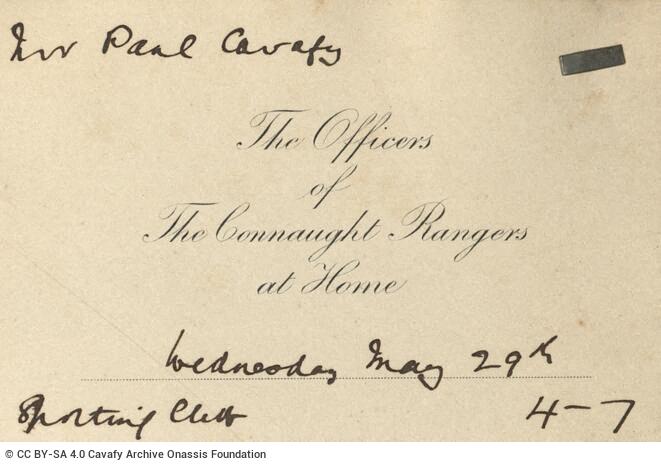 Mr Paul Cavafy
The Officers
of
The Connaught Rangers
at Home
Wednesday May 29th
Sporting Club 4-7
© CC BY-SA 4.0 Cavafy Archive Onassis Foundation